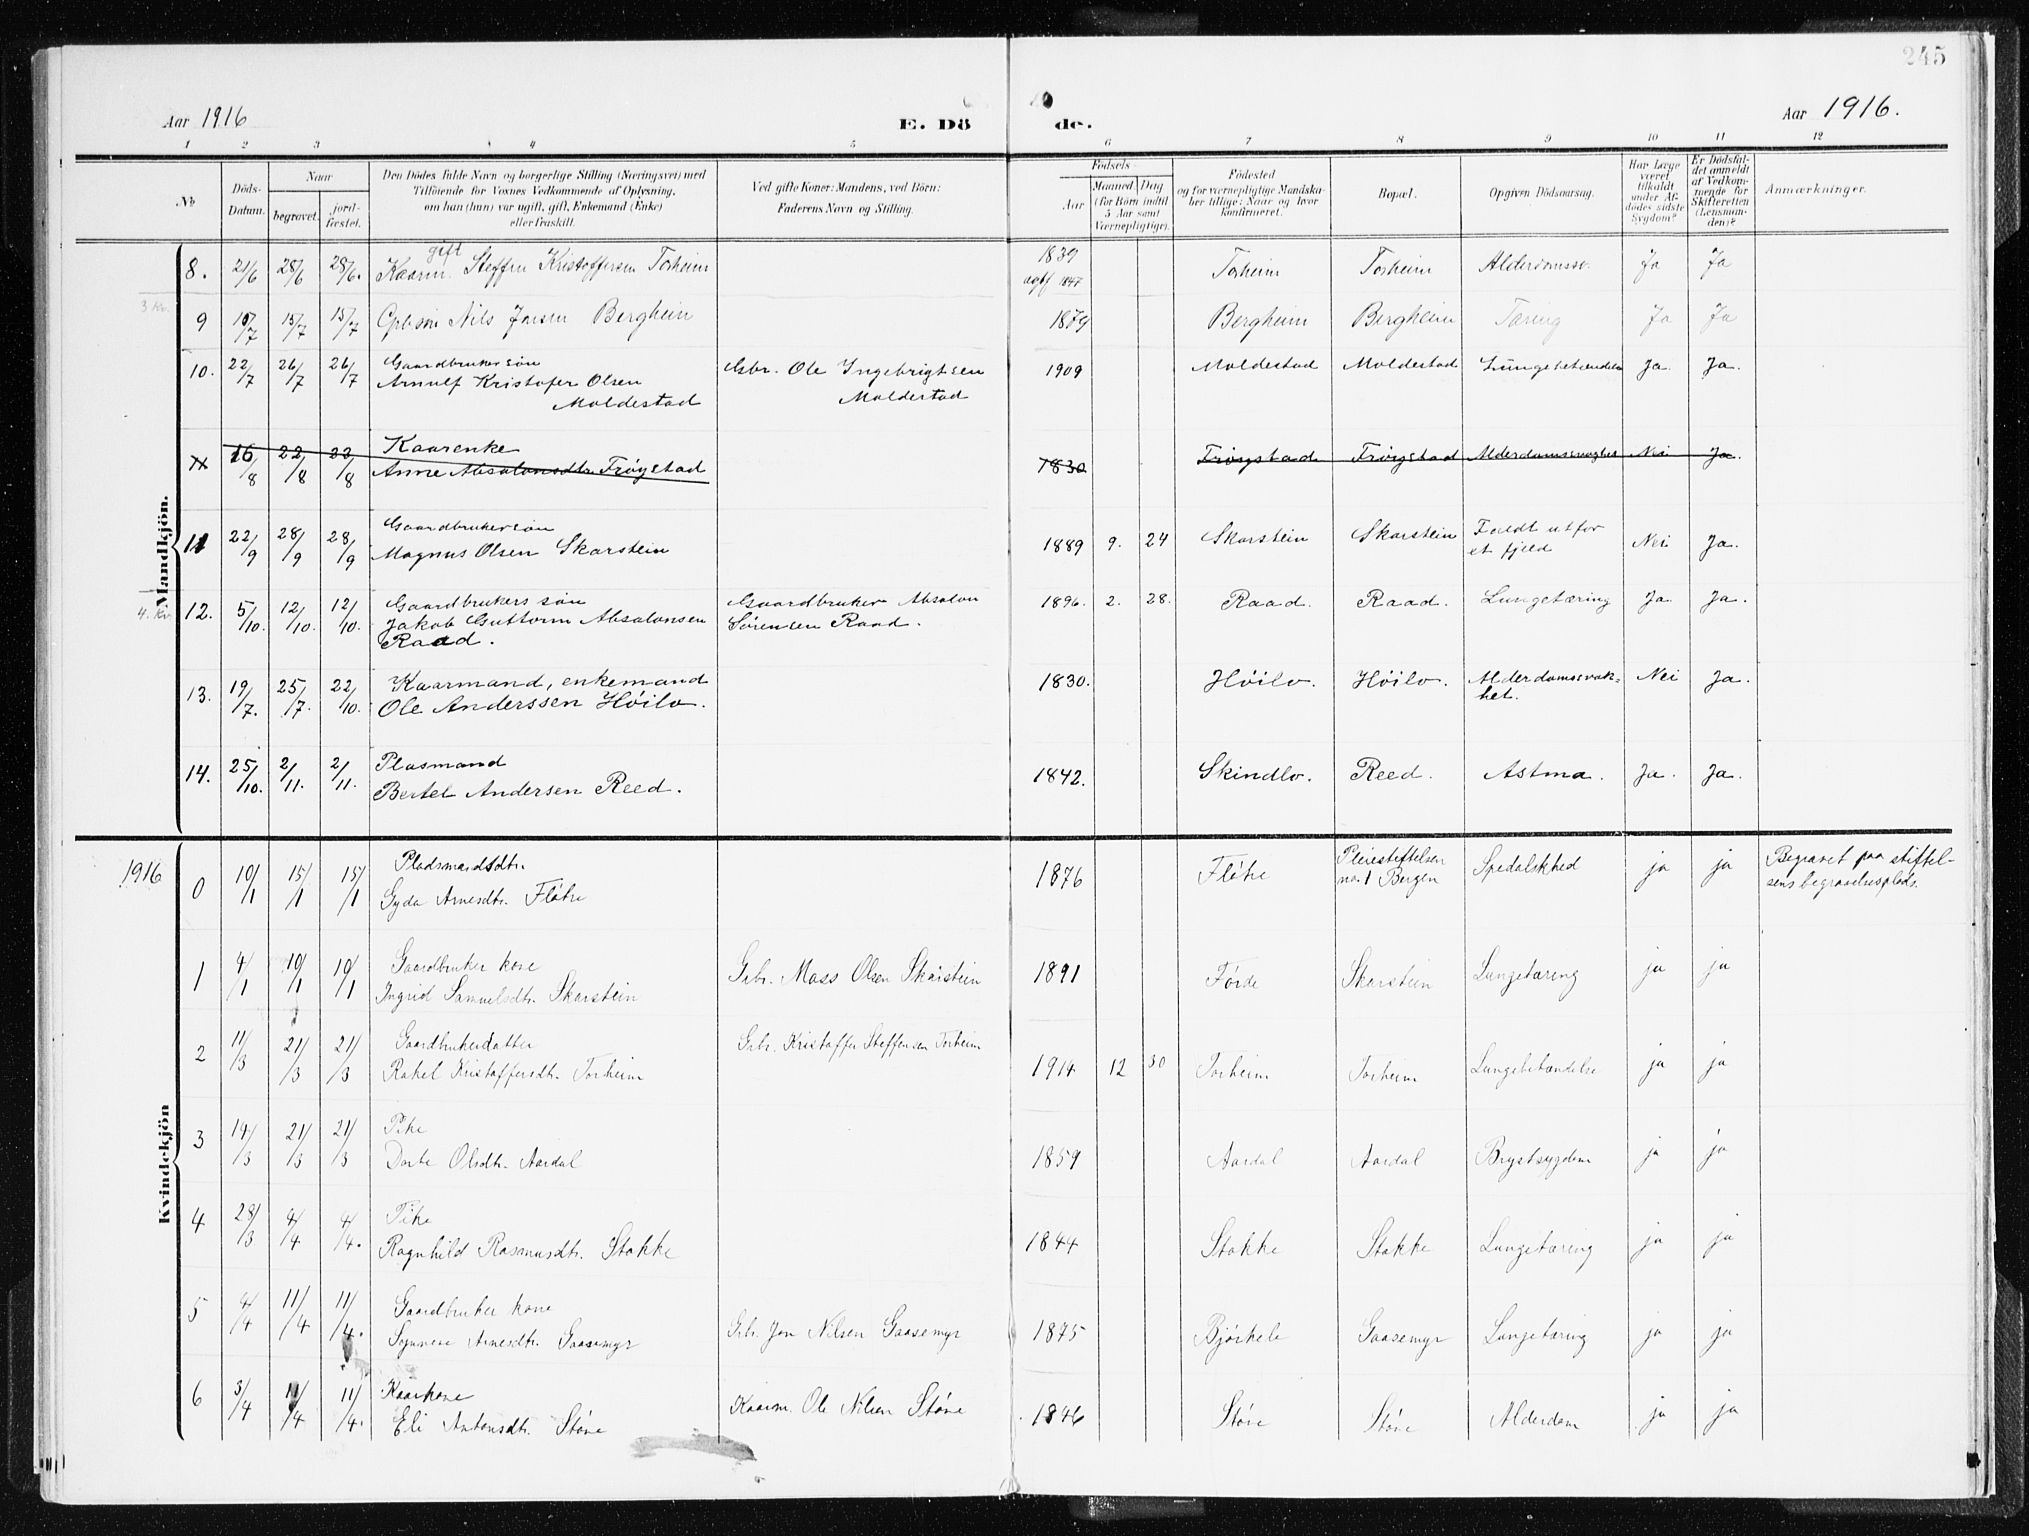 245
Aar 1916
E. Dö
de.
Aar 1916.
1 2 3 4 5 6 7 8 9 10 11 12
No
Döds-
Datum.
Naar
begravet.
jord-
fæstet.
Den Dödes fulde Navn og borgerlige Stilling (Næringsvei) med
Tilföiende for Voxnes Vedkommende af Oplysning,
om han (hun) var ugift, gift, Enkemand (Enke)
eller fraskilt.
Ved gifte Koner: Mandens, ved Börn:
Faderens Navn og Stilling.
Födsels
Aar
Maaned Dag
(for Börn indtil
5 Aar samt
Værnepligtige).
Födested
og for værnepligtige Mandska-
ber tillige: Naar og hvor
konfirmeret.
Bopæl.
Opgiven Dödsaarsag.
Har Læge
været
tilkaldt
under Af-
dödes sidste
Sygdom?
Er Dödsfal-
det anmeldt
af Vedkom-
mende for
Skifteretten
(Lensman-
den)?
Anmærkninger.
Mandkjön.
8. 21/6 28/6 28/6. gift
Kaarm. Steffen Kristoffersen Torheim 1839 Torheim Torheim Ja Ja
1847
3 kv.
9 10/7 15/7 15/7 Nils Jonsen Bergheim 1879 Bergheim Bergheim Tæring Ja Ja
10. 22/7 26/7 26/7 Gaardbrukersøn
Arnulf Kristofer Olsen
Moldestad
Gbr. Ole Ingebrigtsen
Moldestad
1909 Moldestad Moldestad Lungebetændelse Ja. Ja.
11 16/8 22/8 22/8 Kaarenke
Anne Absalonsdtr. Frøystad 1830 Frøystad Frøystad Alderdomssvaghet Nei Ja.
11 22/9 28/9 28/9 Gaardbrukersøn
Magnus Olsen Skarstein 1889 9. 24 Skarstein Skarstein Faldt utfor
et fjeld Nei Ja.
4. kv.
12. 5/10. 12/10. 12/10. Gaardbrukers søn
Jakob Guttorm Absalonsen
Raad.
Gaardbruker Absalon
Sørensen Raad.
1896. 2. 28. Raad. Raad. Lungetæring Ja. Ja.
13. 19/7. 25/7. 22/10. Kaarmand, enkemand
Ole Anderssen Høilo. 1830. Høilo. Høilo. Alderdomssvak=
het. Nei Ja.
14. 25/10. 2/11. 2/11. Plasmand
Bertel Andersen Reed. 1842. Skindlo. Reed. Astma. Ja. Ja.
Kvindekjön
1916
0 10/1 15/1 15/1 Pladsmandsdtr.
Gyda Arnesdtr. Fløtre 1876 Fløtre Pleiestiftelsen
no. 1 Bergen Spedalskhed ja ja Begravet paa stiftel-
sens begravelsesplads.
1 4/1 10/1 10/1 Gaardbruker kone
Ingrid Samuelsdtr. Skarstein Grbr. Mass Olsen Skarstein 1891 Førde Skarstein Lungetæring ja ja
2 11/3 21/3 21/3 Gaardbrukerdatter
Rakel Kristoffersdtr. Torheim Grbr. Kristoffer Steffensen Torheim 1914 12 30 Torheim Torheim Lungebetændelse ja ja
3 14/3 21/3 21/3 Pike
Dorte Olsdtr. Aardal 1859 Aardal Aardal Brystsygdom ja ja
4 28/3 4/4 4/4. Pike
Ragnhild Rasmusdtr. Stokke 1844 Stokke Stokke Lungetæring ja ja
5 4/4 11/4 11/4. Gaardbruker kone
Synneve Arnesdtr. Gaasemyr Grbr. Jon Nilsen Gaasemyr 1875 Bjørkelo Gaasemyr Lungetæring ja ja
6 3/4 11/4 11/4. Kaarkone
Eli Antonsdtr. Støve Kaarm. Ole Nilsen Støve 1846 Støve Støve Alderdom ja ja